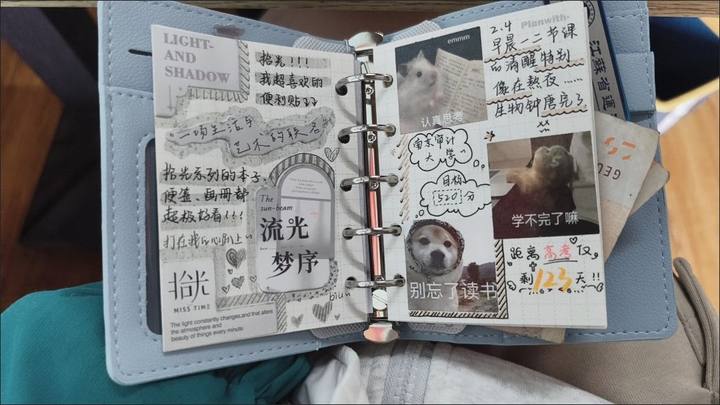 LIGHT-
AND
SHADOW
拾光!!!
我超喜欢的
便利贴子
一场生活与
艺术的联名
拾光系列的本子、
便签、画册都
超极好看!!!
打在我的心趴上
The
sun-beam
流光
梦序
拾光
MISS TIME
The light constantly changes,and that alters
the atmosphere and
beauty of things every minute.
biu
emmm
认真思考
Planwith-
2.4
早晨一二节课
的清醒特别
像在熬夜……
生物钟废完了
南京审计
大学
目标
520分
学不完了嘛
别忘了读书
距离高考仅
剩123天!!
江苏省通